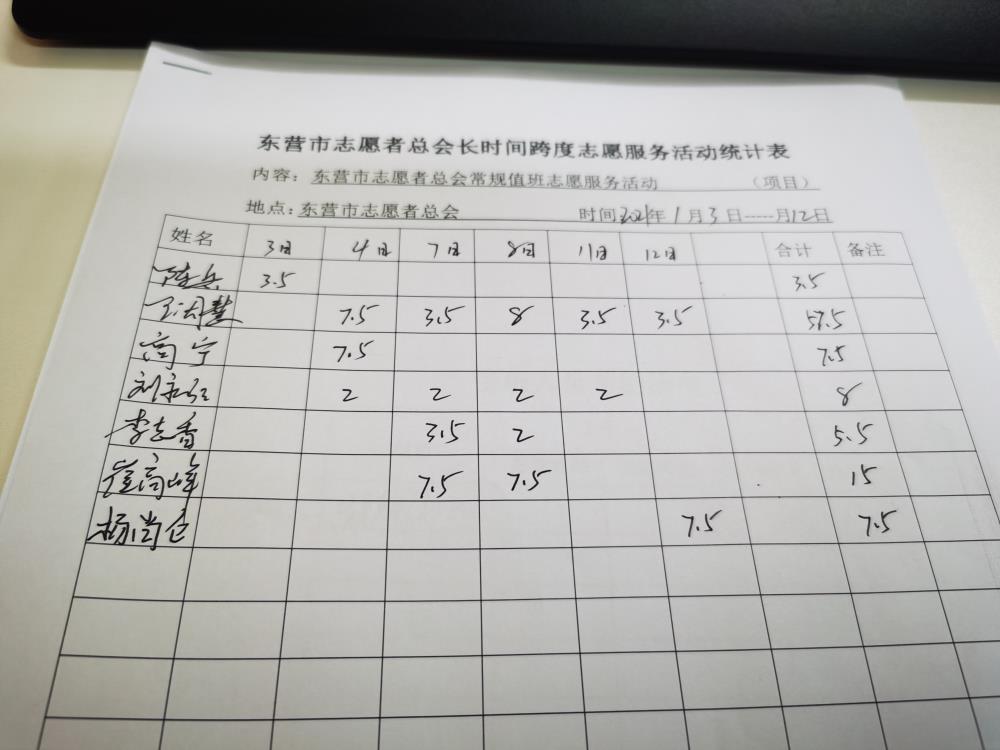 东营市志愿者总会长时间跨度志愿服务活动统计表
内容：东营市志愿者总会常规值班志愿服务活动 （项目）
地点：东营市志愿者总会 时间2021年1月3日-----月12日
姓名 3日 4日 7日 8日 11日 12日 合计 备注
陈兵 3.5 3.5
7.5 3.5 8 3.5 3.5 57.5
高宁 7.5 7.5
刘 2 2 2 2 8
李志香 3.5 2 5.5
崔高峰 7.5 7.5 15
杨尚仓 7.5 7.5